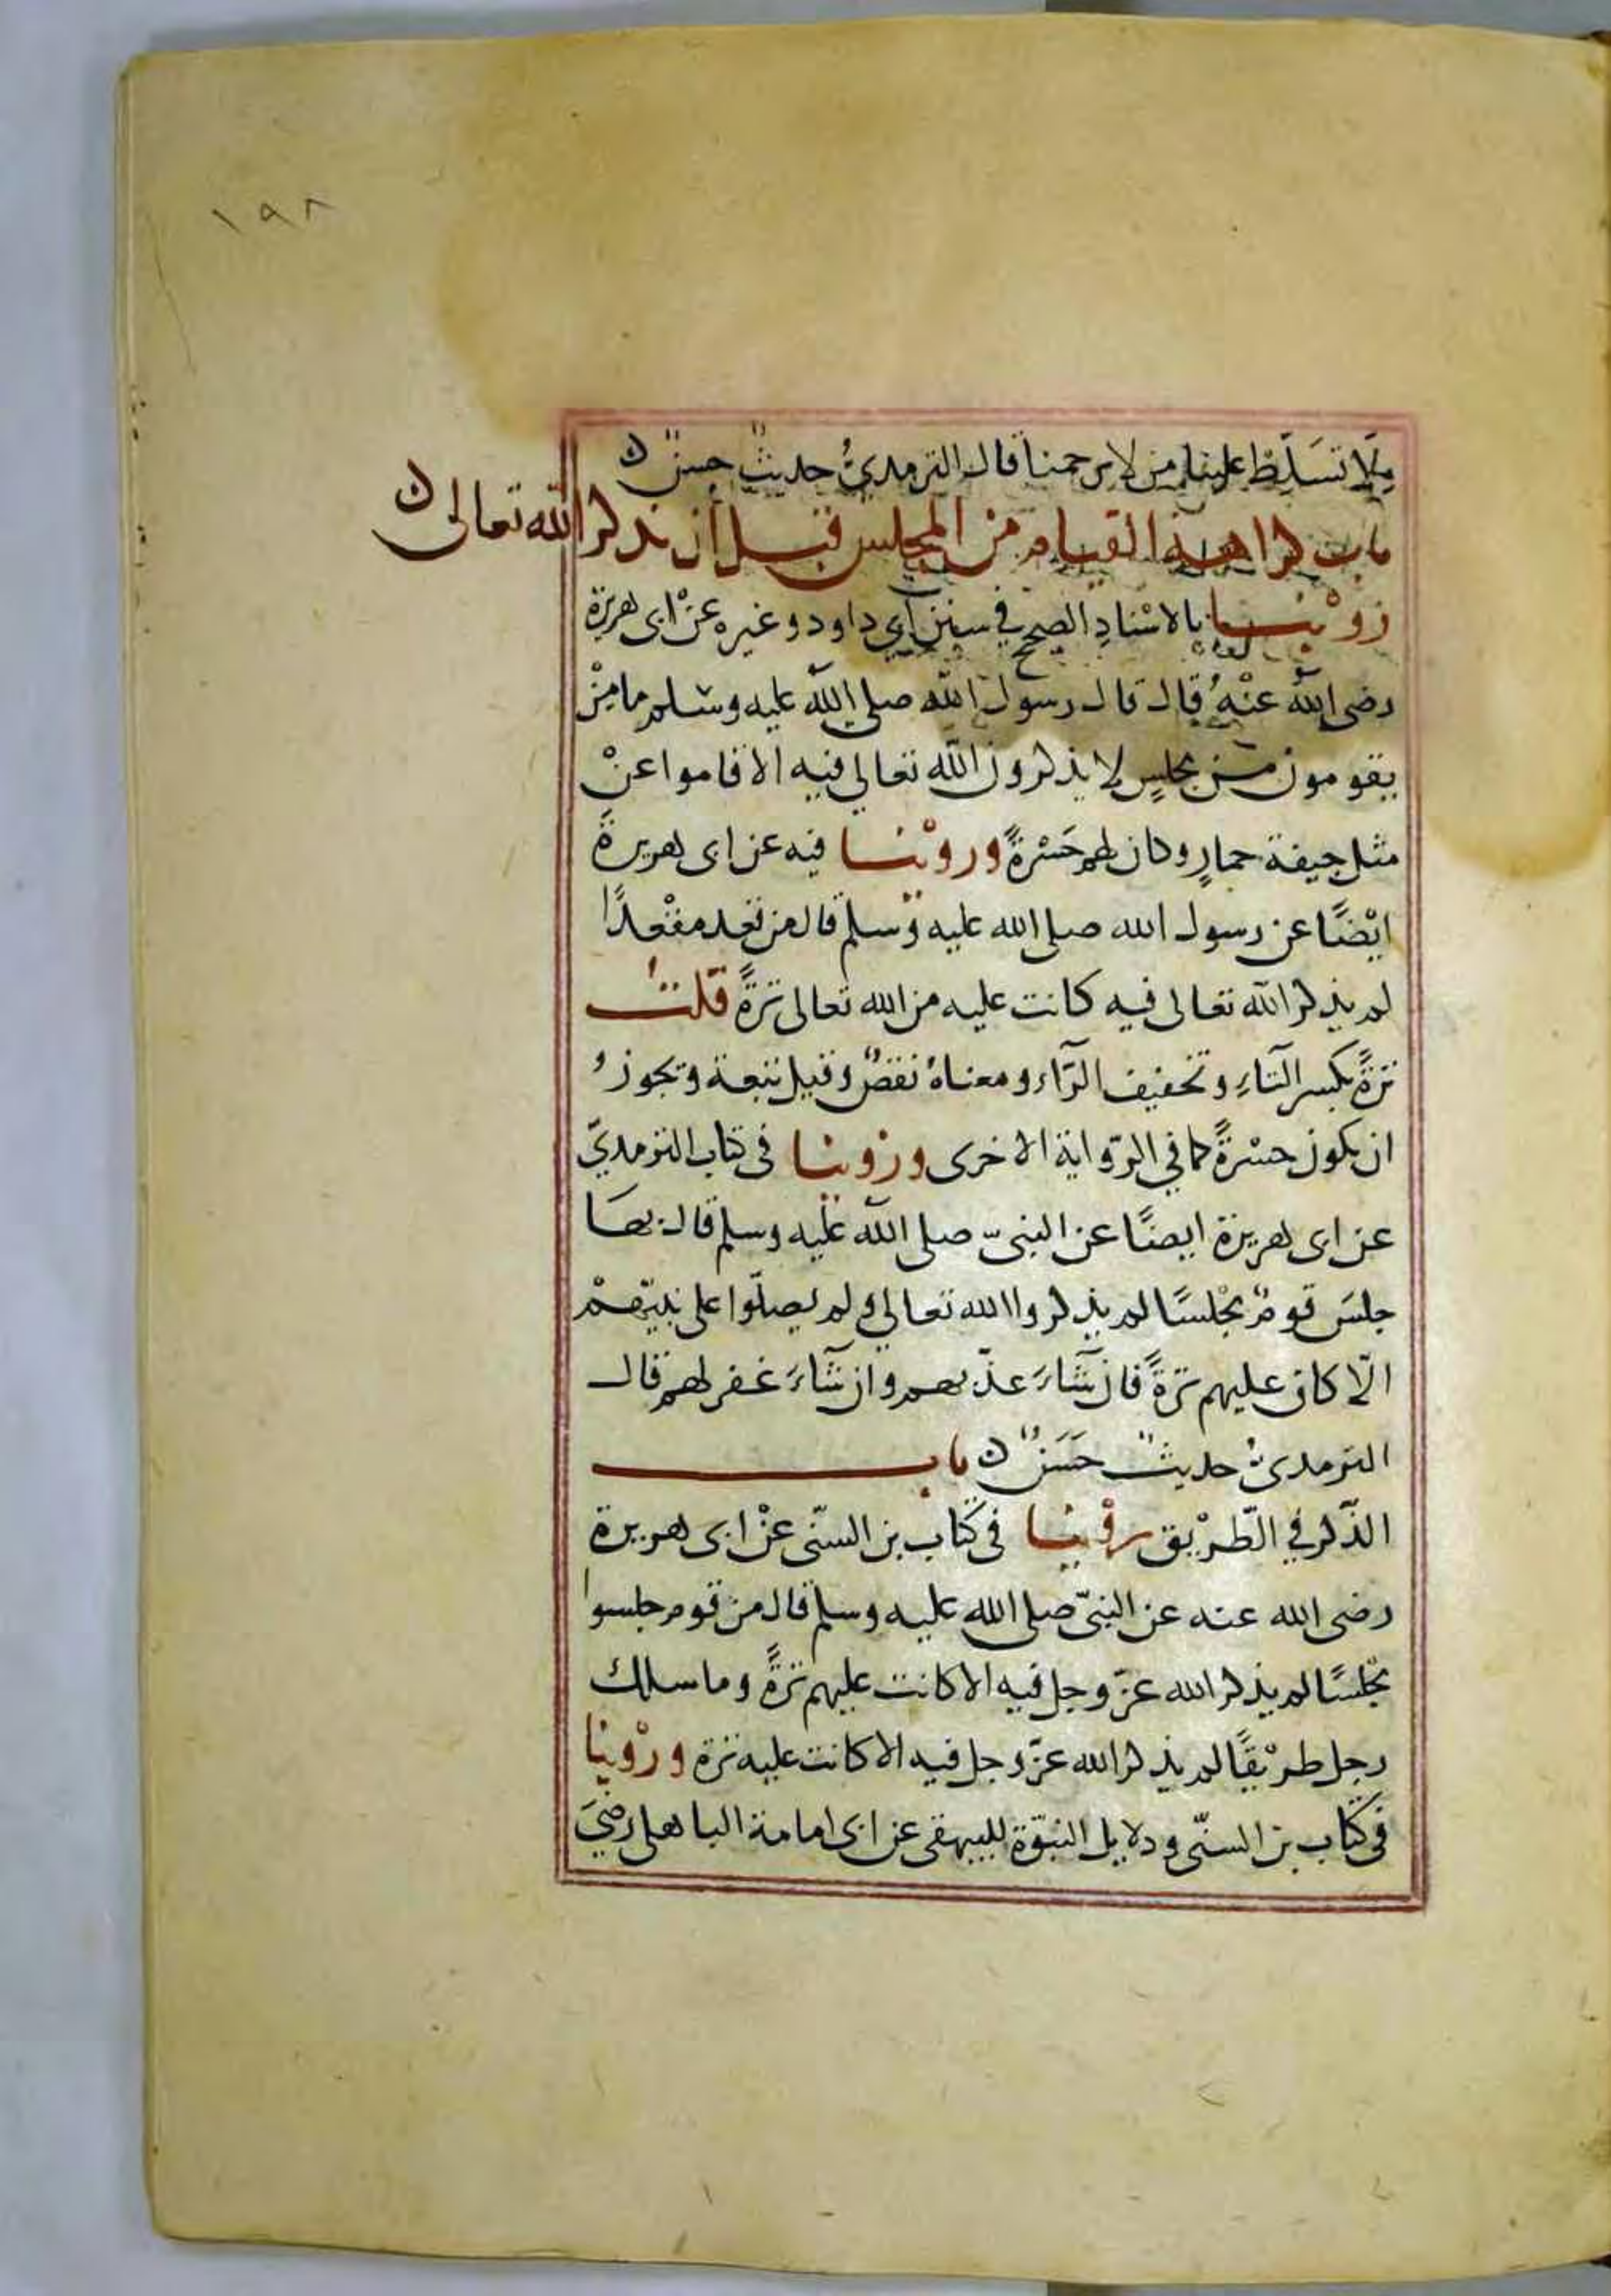 ١٩٨
ولا تسَلّط علينا من لا يرحمنا قال الترمديُّ حديثٌ حسنٌ
باب كراهية القيام من المجلس قبل أن يذكر الله تعالى
رُوْينا بالاسْنادِ الصحيح في سنن أبي داود وغيره عنْ ابى هريرة
رضى الله عنْهُ قال قال رسول الله صلى الله عليه وسلم ما مِنْ
يقومون من مجلسٍ لا يذكرون الله تعالى فيه الا قاموا عنْ
مثل جيفة حمارٍ وكان لهم حَسْرةً وروْينا فيه عن ابى هريرة
ايْضًا عن رسول الله صلى الله عليه وسلم قال من قعد مقْعدًا
لم يذكر الله تعالى فيه كانت عليه من الله تعالى ترةً قلتُ
ترةً بكسر التاءِ وتخفيف الرّاء ومعناهُ نقصٌ وقيل تبعة وتجوزُ
ان يكون حسْرةً كما في الرّواية الاخرى ورُوينا في كتاب الترمديّ
عن ابى هريرة ايضًا عن النبيّ صلى الله عليه وسلم قال بها
جلسَ قومٌ مجْلسًا لم يذكروا الله تعالى ولم يصلّوا على نبيّهمْ
الّا كان عليهم ترةً فان شَاءَ عذّبهم وان شَاءَ غفر لهم قال
الترمدىُّ حديثٌ حَسَنٌ باب
الذّكر في الطّريْق روْينا في كتاب بن السنّى عنْ ابى هريرة
رضى الله عنه عن النبيّ صلى الله عليه وسلم قال من قوم جلسوا
مجْلسًا لم يذكر الله عزّ وجل فيه الا كانت عليهم ترةً وما سلك
رجل طريْقًا لم يذكر الله عزّ وجل فيه الا كانت عليه ترة وروْينا
في كتاب بن السنّى ودلايل النبوّة للبيهقى عن ابى امامة الباهلى رضيَ